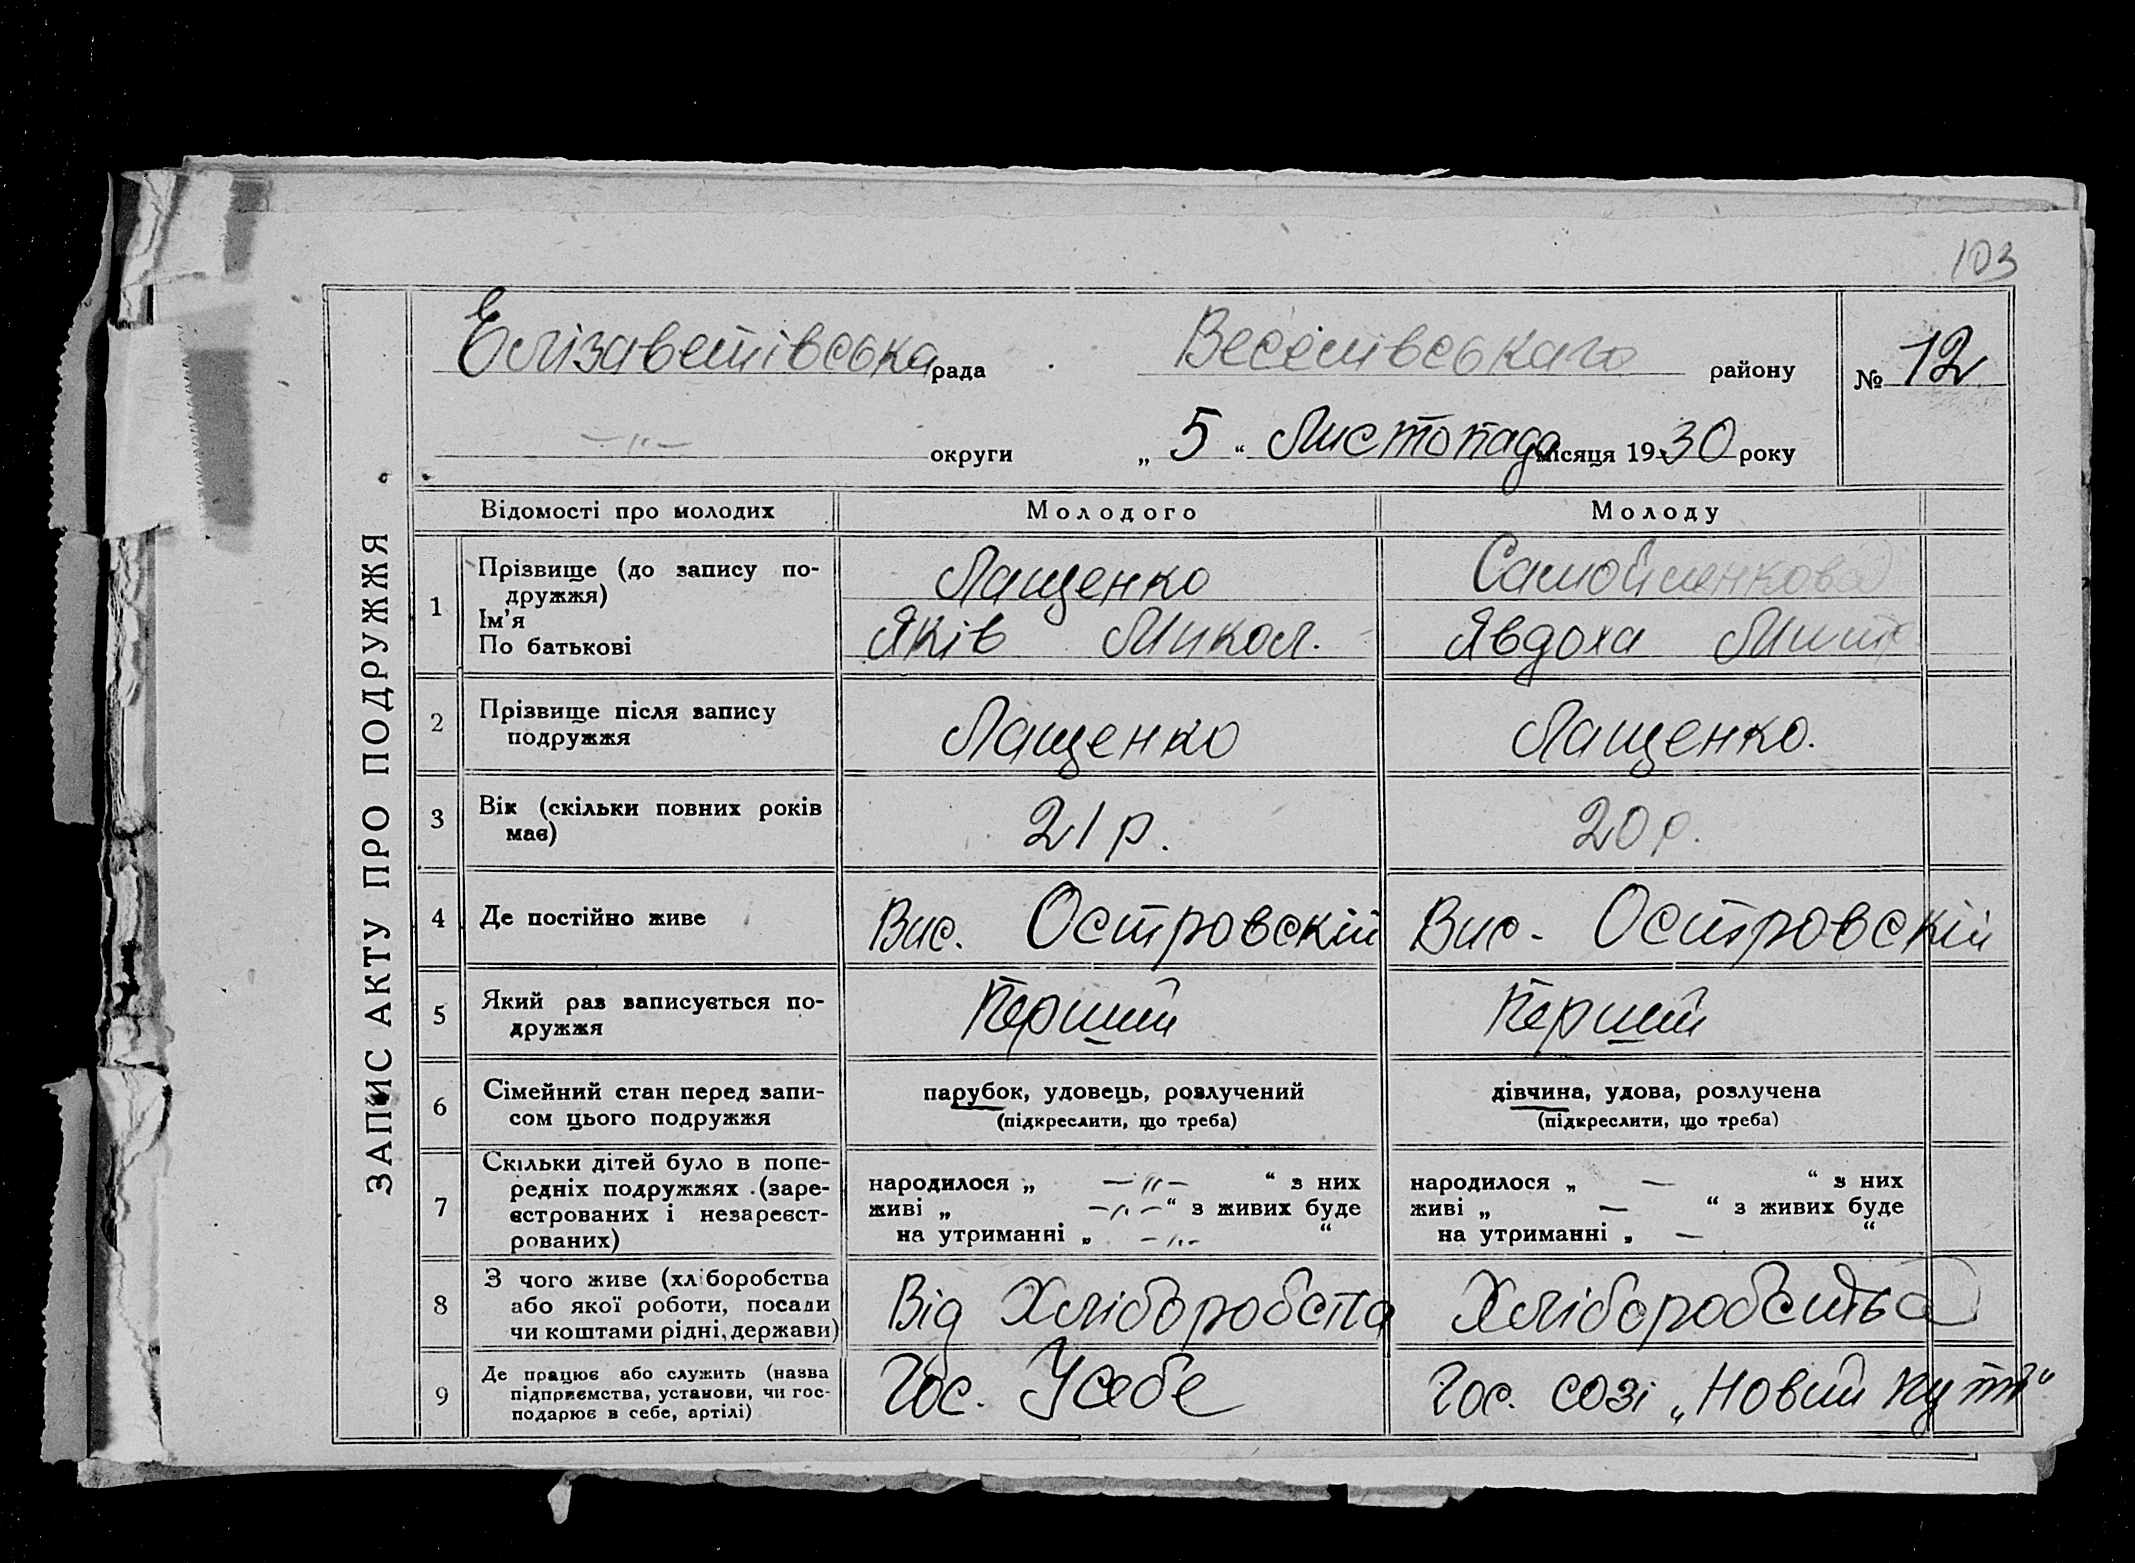 103
Єлізаветівська рада Веселівськаго району № 12
—"— округи „ 5 “ Листопада місяця 1930 року
ЗАПИС АКТУ ПРО ПОДРУЖЖЯ
Відомості про молодих Молодого Молоду
1 Прізвище (до запису по- Лащенко Самойленкова
дружжя)
Ім’я Яків Микол. Явдоха
По батькові
2 Прізвище після запису Лащенко Лащенко.
подружжя
3 Вік (скільки повних років 21 р. 20 р.
має)
4 Де постійно живе Вис. Островскій Вис. Островскій
5 Який раз записується по- Перший Перший
дружжя
6 Сімейний стан перед запи- парубок, удовець, розлучений дівчина, удова, розлучена
сом цього подружжя (підкреслити, що треба) (підкреслити, що треба)
7 Скільки дітей було в попе-
редніх подружжях (заре- народилося „ —"— “ з них народилося „ — “ з них
єстрованих і незареєст- живі „ —"— “ з живих буде живі „ — “ з живих буде
рованих) на утриманні „ —"— “ на утриманні „ — “
8 З чого живе (хліборобства Від Хліборобста Хліборобситва
або якої роботи, посади
чи коштами рідні, держави)
9 Де працює або служить (назва Гос. У себе Гос. созі „Новий путь“
підприємства, установи, чи гос-
подарює в себе, артілі)